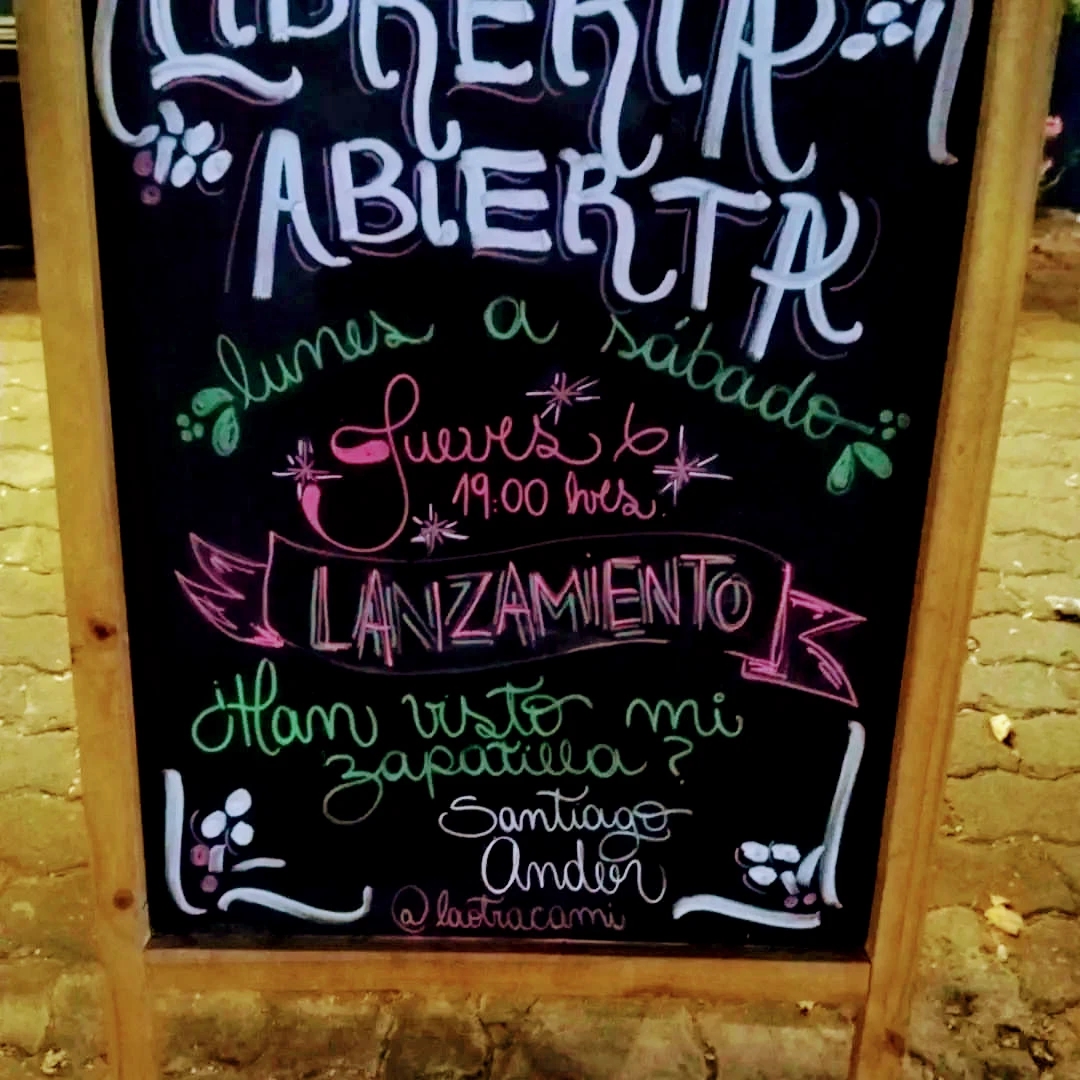 LIBRERIA
ABIERTA
lunes a sábado
Jueves 6
19:00 hrs.
LANZAMIENTO
¿Han visto mi
zapatilla?
Santiago
Ander
@laotracami